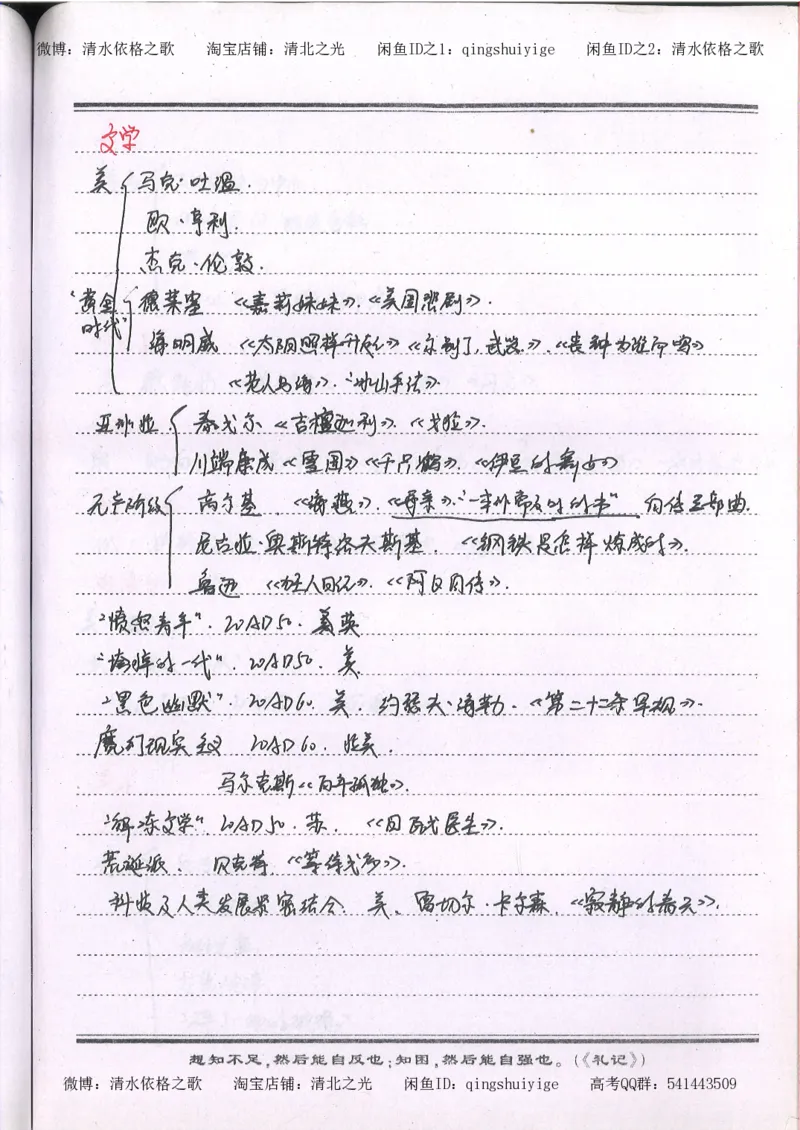 微博：清水依格之歌 淘宝店铺：清北之光 闲鱼ID之1：qingshuiyige 闲鱼ID之2：清水依格之歌
文学
美 马克·吐温.
欧·亨利.
杰克·伦敦.
"黄金时代" 德莱塞 《嘉莉妹妹》.《美国悲剧》.
海明威 《太阳照样升起》《永别了,武器》.《丧钟为谁而鸣》
《老人与海》."冰山手法".
亚非拉 泰戈尔《吉檀迦利》.《戈拉》.
川端康成《雪国》《千只鹤》.《伊豆的舞女》
无产阶级 高尔基.《海燕》.《母亲》."一本非常及时的书" 自传三部曲.
尼古拉·奥斯特洛夫斯基.《钢铁是怎样炼成的》.
鲁迅 《狂人日记》.《阿Q正传》.
"愤怒青年". 20AD50. 英
"垮掉的一代". 20AD50. 美
"黑色幽默". 20AD60. 美. 约瑟夫·海勒.《第二十二条军规》.
魔幻现实主义 20AD60. 拉美.
马尔克斯《百年孤独》.
"解冻文学" 20AD50. 苏. 《日瓦戈医生》.
荒诞派. 贝克特.《等待戈多》.
科技及人类发展紧密结合. 美. 雷切尔·卡尔森.《寂静的春天》.
想知不足,然后能自反也;知困,然后能自强也。(《礼记》)
微博：清水依格之歌 淘宝店铺：清北之光 闲鱼ID：qingshuiyige 高考QQ群：541443509